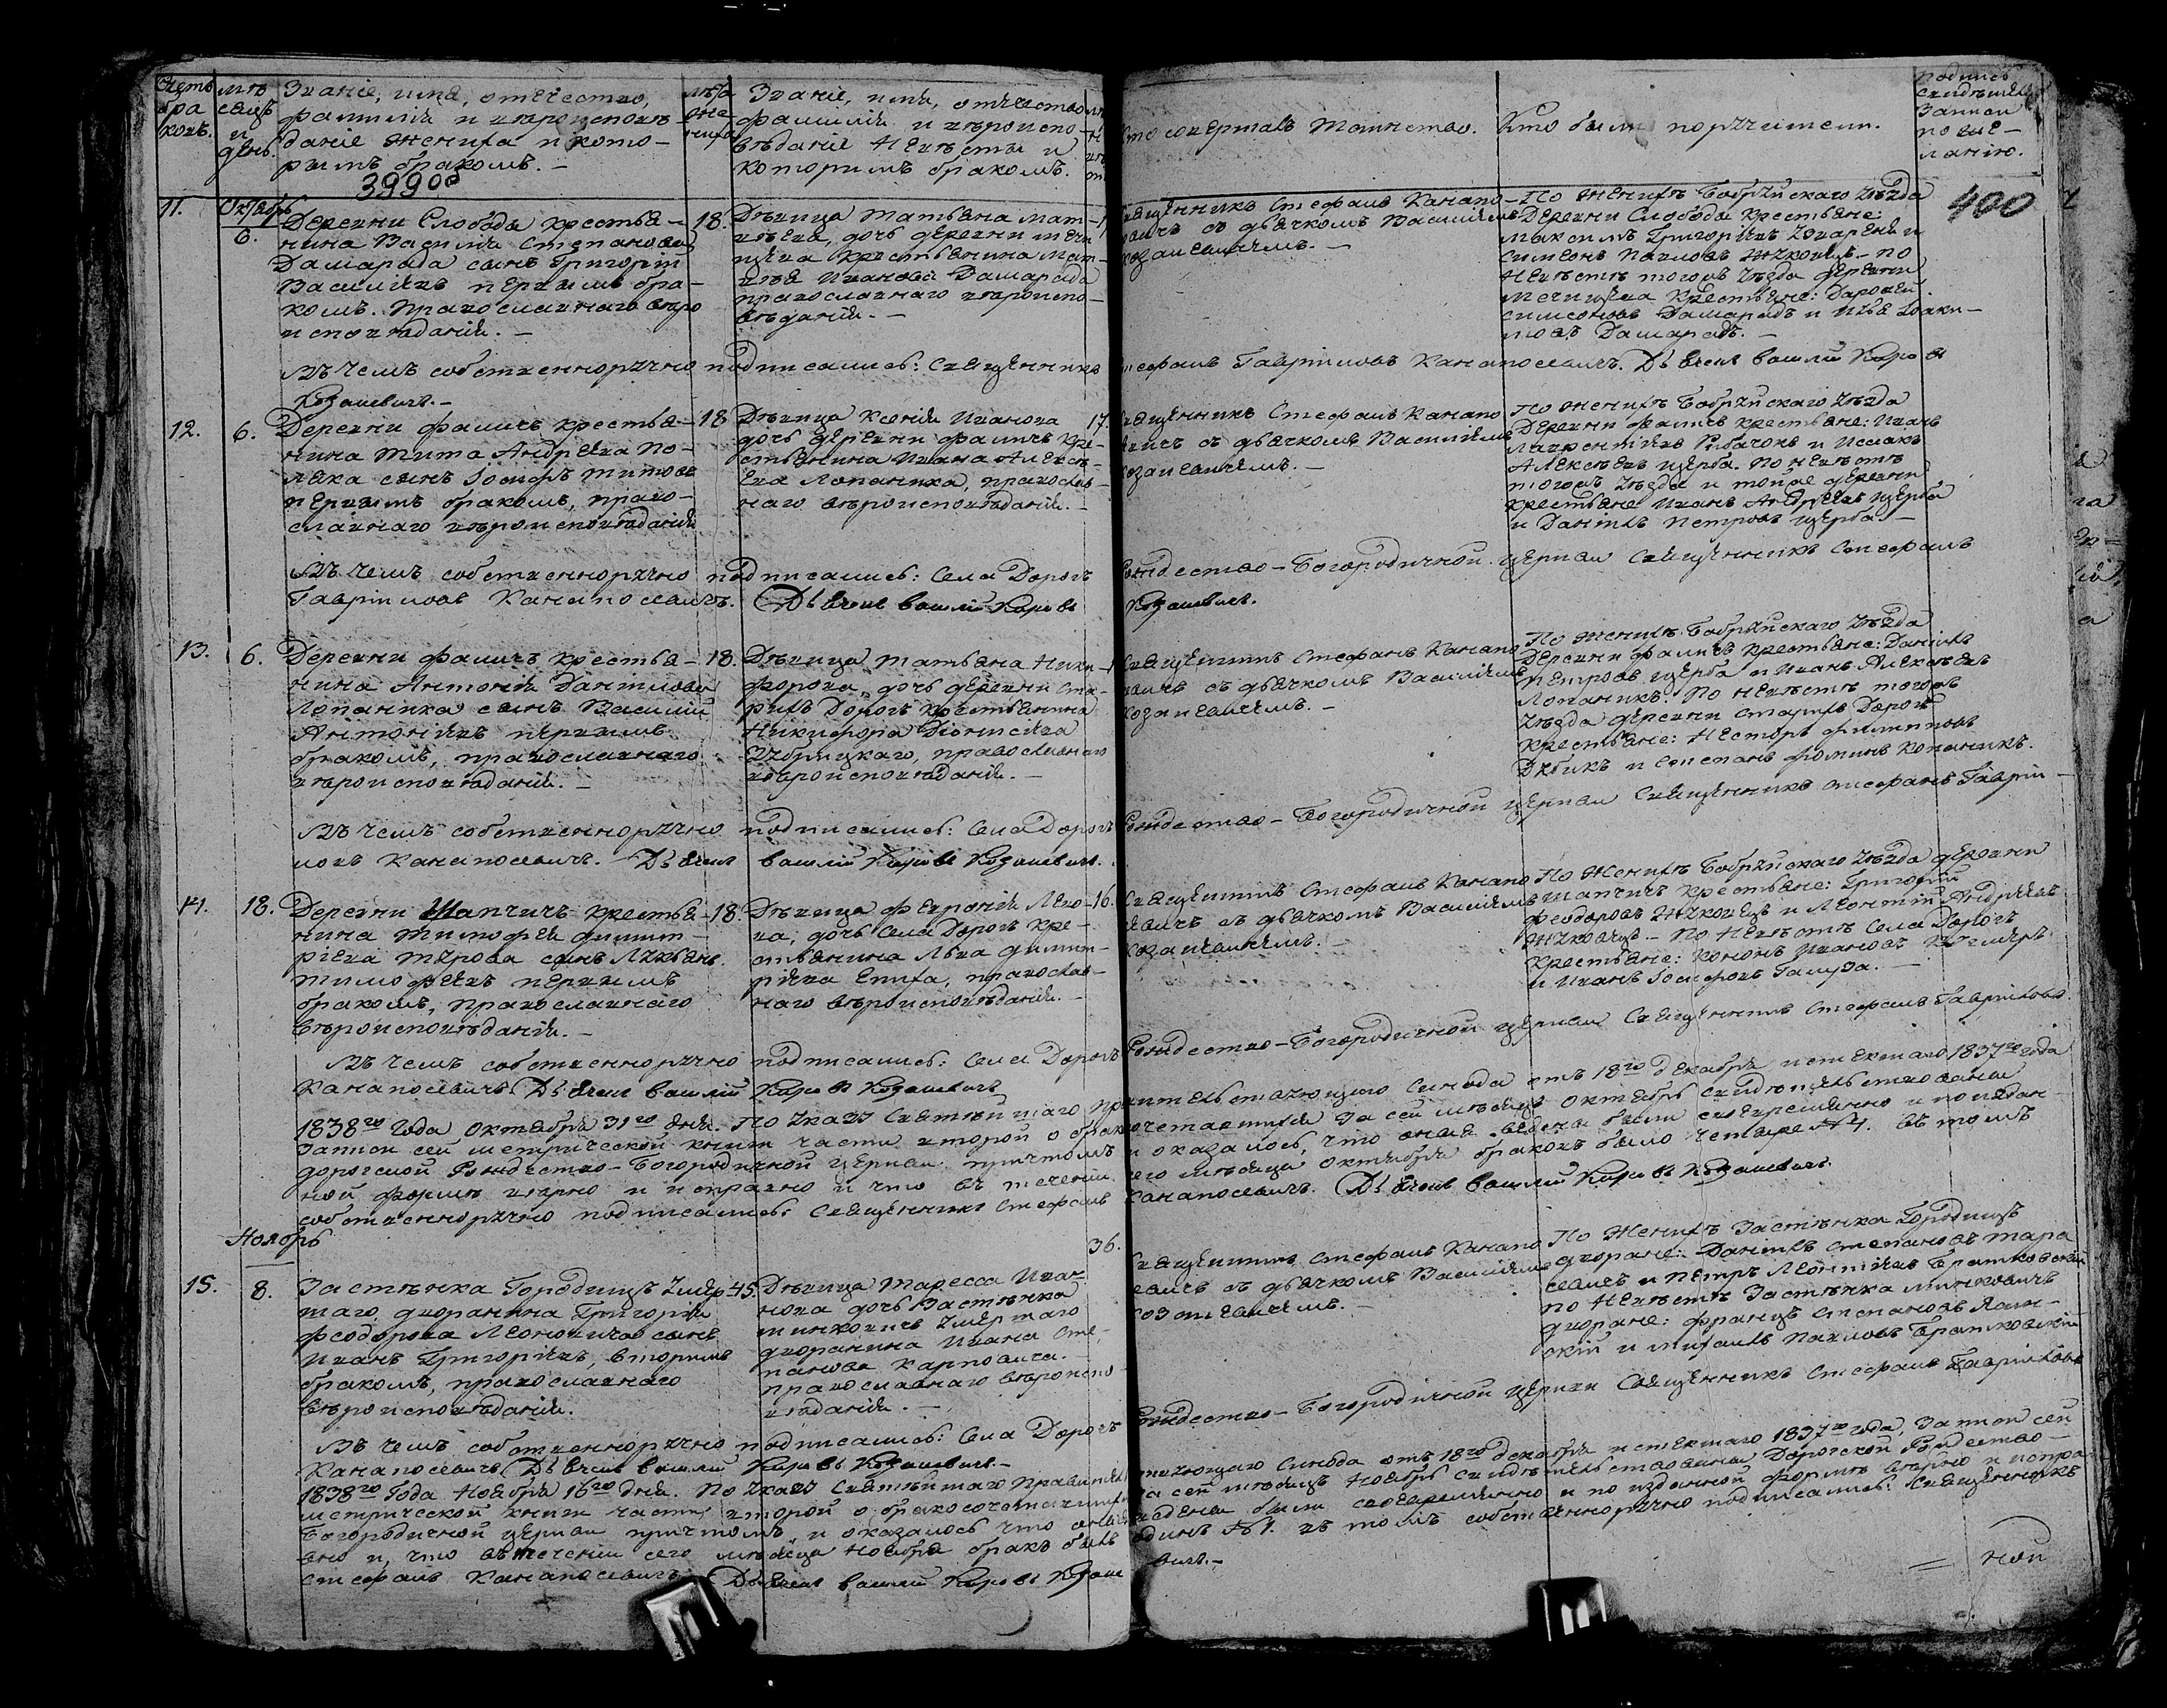 Счетъ браковъ.
Мѣсяцъ и день.
Званіе, имя, отечество,
фамилія и вѣроисповѣ
даніе жениха и кото-
рымъ бракомъ. -
Званіе, имя, отечество
фамилія и вѣроиспо-
вѣданіе невѣсты и
которымъ бракомъ.
Кто совершалъ таинство.
Кто были поручители.
Подпись
свидѣтелей
записи
по же-
ланію.
399об
400
11.
Октябрь
6.
Деревни Слобода крестья-
нина Василія Степанова
Дамарада сынъ Григорій
Васильевъ первымъ бра-
комъ. Православнаго вѣро
исповѣданія. -
18.
Дѣвица Татьяна Мат-
вѣева, дочь деревни
крестьянина Мат-
вѣя Иванова Дамарада
православнаго вѣроиспо-
вѣданія. -
Священникъ Стефанъ Канапо-
севичъ съ дьячкомъ Василіемъ
Козакевичемъ. -
По женихѣ Бобруйскаго уѣзда
деревни Слободы крестьяне:
Максимъ Григорьевъ и
Симеонъ Павловъ Жуковецъ - по
невѣстѣ тогожъ уѣзда деревни
крестьяне:
Симеоновъ Дамарадъ и Илья
Дамарадъ. -
Въ чемъ собственноручно подписались: Священникъ Стефанъ Гавріиловъ Канапосевичъ. Дьячокъ Василій
Козакевичъ. -
12.
6.
Деревни Фаличъ крестья-
нина Тита Андреева По-
лека сынъ Іосифъ Титовъ
первымъ бракомъ, право-
славнаго вѣроисповѣданія
18
Дѣвица Ксенія Иванова
дочь деревни Фаличъ кре-
стьянина Ивана Алексѣ-
ева Лопаника, православ-
наго вѣроисповѣданія. -
17.
Священникъ Стефанъ Канапо
севичъ съ дьячкомъ Василіемъ
Козакевичемъ. -
По женихѣ Бобруйскаго уѣзда
деревни Фаличъ крестьяне: Иванъ
Лаврентіевъ Рыбачокъ и Исаакъ
Алексѣевъ Щерба. По невѣстѣ
тогожъ уѣзда и тойже деревни
крестьяне Иванъ Андреевъ Щерба
и Даніилъ Петровъ Щерба. -
Въ чемъ собственноручно подписались: Села Дорогъ Рождество-Богородичной церкви Священникъ Стефанъ
Гавріиловъ Канапосевичъ. Дьячокъ Василій Козакевичъ.
13.
6.
Деревни Фаличъ крестья-
нина Антонія Даніилова
Лопаника сынъ Василій
Антоніевъ первымъ
бракомъ, православнаго
вѣроисповѣданія. -
18.
Дѣвица Татьяна Ники-
форова, дочь деревни Ста-
рыхъ Дорогъ крестьянина
Никифора Діонисіева
православнаго
вѣроисповѣданія. -
Священникъ Стефанъ Канапо
севичъ съ дьячкомъ Василіемъ
Козакевичемъ. -
По женихѣ Бобруйскаго уѣзда
деревни Фаличъ крестьяне: Даніилъ
Петровъ Щерба и Иванъ Алексѣевъ
Лопаникъ. По невѣстѣ тогожъ
уѣзда деревни Старыхъ Дорогъ
крестьяне: Несторъ Филиповъ
и Степанъ Фоминъ
Въ чемъ собственноручно подписались: Села Дорогъ Рождество-Богородичной церкви Священникъ Стефанъ Гавріи-
ловъ Канапосевичъ. Дьячокъ Василій Козакевичъ.
14.
18.
Деревни Шапчичъ крестья-
нина Тимофея Димит-
ріева сынъ
Тимофеевъ первымъ
бракомъ, православнаго
вѣроисповѣданія. -
18.
Дѣвица Февронія Льво-
ва, дочь Села Дорогъ кре-
стьянина Льва Димит-
ріева православ-
наго вѣроисповѣданія. -
16.
Священникъ Стефанъ Канапо
севичъ съ дьячкомъ Василіемъ
Козакевичемъ. -
По женихѣ Бобруйскаго уѣзда деревни
Шапчичъ крестьяне: Григорій
Феодоровъ Жуковецъ и Леонтій Андреевъ
Жуковецъ. - По невѣстѣ Села Дорогъ
крестьяне: Кононъ Ивановъ
и Иванъ Іосифовъ
Въ чемъ собственноручно подписались: Села Дорогъ Рождество-Богородичной церкви Священникъ Стефанъ Гавріиловъ
Канапосевичъ Дьячокъ Василій Козакевичъ
1838го года Октября 31го дня. По указу Святѣйшаго Правительствующаго Синода отъ 18го декабря истекшаго 1837го года
записи сей метрической книги части второй о бракосочетавшихся за сей мѣсяцъ Октябрь свидѣтельствованы
Дорогской Рождество-Богородичной церкви причтомъ и оказалось, что оныя ведены были своевременно и по издан-
ной формѣ вѣрно и исправно и что въ теченіи сего мѣсяца Октября браковъ было четыре №4. въ томъ
собственноручно подписались: Священникъ Стефанъ Канапосевичъ. Дьячокъ Василій Козакевичъ.
Ноябрь
15.
8.
Застѣнка Городищъ умер-
шаго дворянина Григорія
Феодорова Леоновича сынъ
Иванъ Григорьевъ, вторымъ
бракомъ, православнаго
вѣроисповѣданія.
45.
Дѣвица Таресса Ива-
нова дочь Застѣнка
Минковичъ умершаго
дворянина Ивана Сте-
панова Карповича.
православнаго вѣроиспо-
вѣданія. -
36.
Священникъ Стефанъ Канапо
севичъ съ дьячкомъ Василіемъ
Козакевичемъ. -
По женихѣ Застѣнка Городищъ
дворяне: Даніилъ Степановъ Тара
севичъ и Петръ Леонтіевъ Братковскій
по невѣстѣ Застѣнка Минковичъ
дворяне: Францъ Степановъ
скій и Михаилъ Павловъ Братковскій
Въ чемъ собственноручно подписались: Села Дорогъ Рождество-Богородичной церкви Священникъ Стефанъ Гавріиловъ
Канапосевичъ Дьячокъ Василій Козакевичъ. -
1838го года Ноября 16го дня. По указу Святѣйшаго Правительствующаго Синода отъ 18го декабря истекшаго 1837го года, записи сей
метрической книги части второй о бракосочетавшихся за сей мѣсяцъ Ноябрь свидѣтельствованы Дорогской Рождество-
Богородичной церкви причтомъ, и оказалось что оныя ведены были своевременно и по изданной формѣ вѣрно и испра-
вно и, что въ теченіи сего мѣсяца Ноября бракъ былъ одинъ №1. въ томъ собственноручно подписались: Священникъ
Стефанъ Канапосевичъ. Дьячокъ Василій Козакевичъ. -